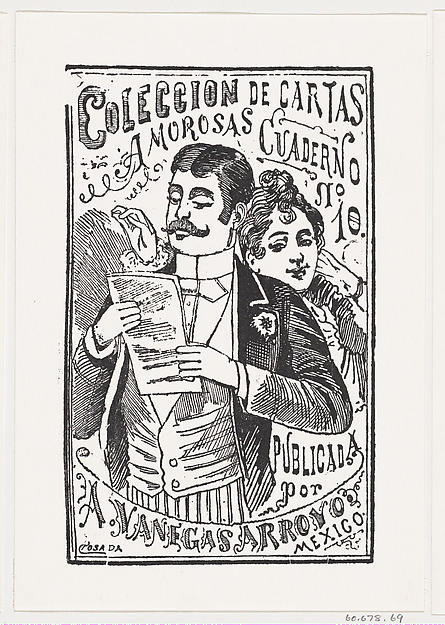 COLECCION DE CARTAS
AMOROSAS CUADERNO
No 10.
PUBLICADA
por
A. VANEGAS ARROYO.
MEXICO
POSADA
60.678.69